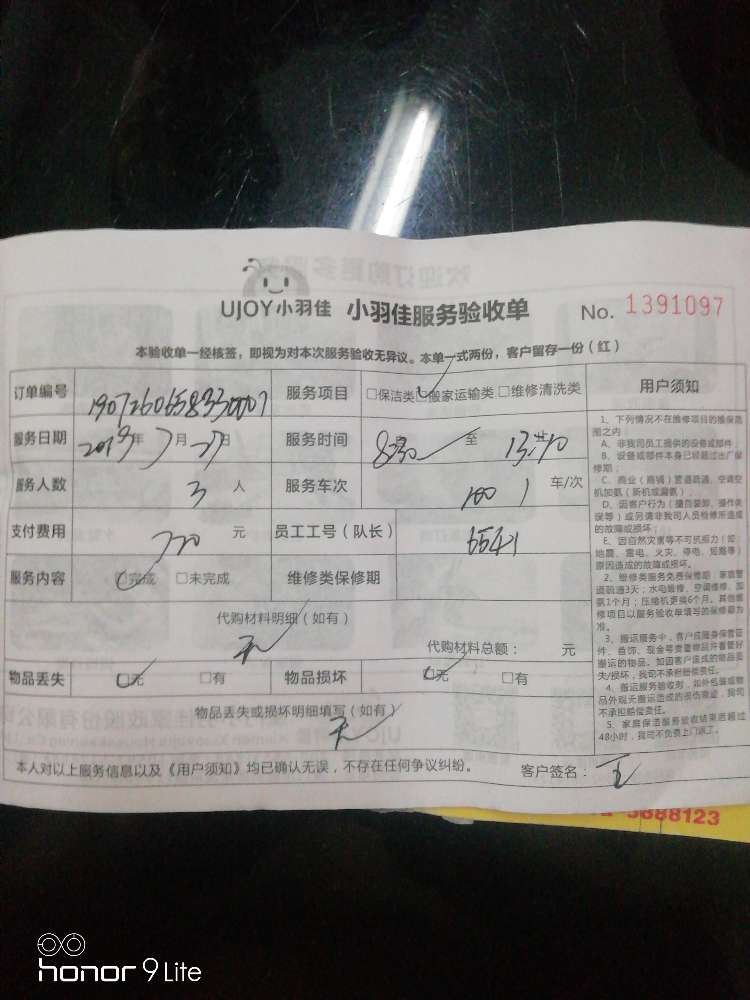 UJOY小羽佳 小羽佳服务验收单 No. 1391097
本验收单一经核签，即视为对本次服务验收无异议。本单一式两份，客户留存一份（红）
订单编号 服务项目 □保洁类 □搬家运输类 □维修清洗类 用户须知
服务日期 2019年7月27日 服务时间 8:30 至
服务人数 3 人 服务车次 1 车/次
支付费用 720 元 员工工号（队长） 6541
服务内容 □完成 □未完成 维修类保修期
代购材料明细（如有）
无
代购材料总额： 元
物品丢失 □无 □有 物品损坏 □无 □有
物品丢失或损坏明细填写（如有）
无
本人对以上服务信息以及《用户须知》均已确认无误，不存在任何争议纠纷。 客户签名： 王
1、下列情况不在维修项目的维保范
围之内：
A、非我司员工提供的设备或部件；
B、设备或部件本身已经超过出厂保
修期；
C、商业（商铺）管道疏通、空调空
机加氨（新机或漏氨）；
D、因客户行为（擅自装卸、操作失
误等）或另请非我司人员检修所造成
的故障或损坏；
E、因自然灾害等不可抗拒力（如：
地震、雷电、火灾、停电、短路等）
原因造成的故障或损坏。
2、维修类服务免费保修期：家庭管
道疏通3天；水电维修、空调维修、加
氨1个月；压缩机更换6个月。其他维
修项目以服务验收单填写的保修期为
准。
3、搬运服务中，客户应随身保管证
件、首饰、现金等贵重物品并看管好
搬运的物品。如因客户造成的物品丢
失/损坏，我司不承担赔偿责任。
4、搬运服务验收时，如外包装或物
品外观无搬运造成的损伤事宜，我司
不承担赔偿责任。
5、家庭保洁服务验收结束后超过
48小时，我司不负责上门返工。
5688123
honor 9 Lite